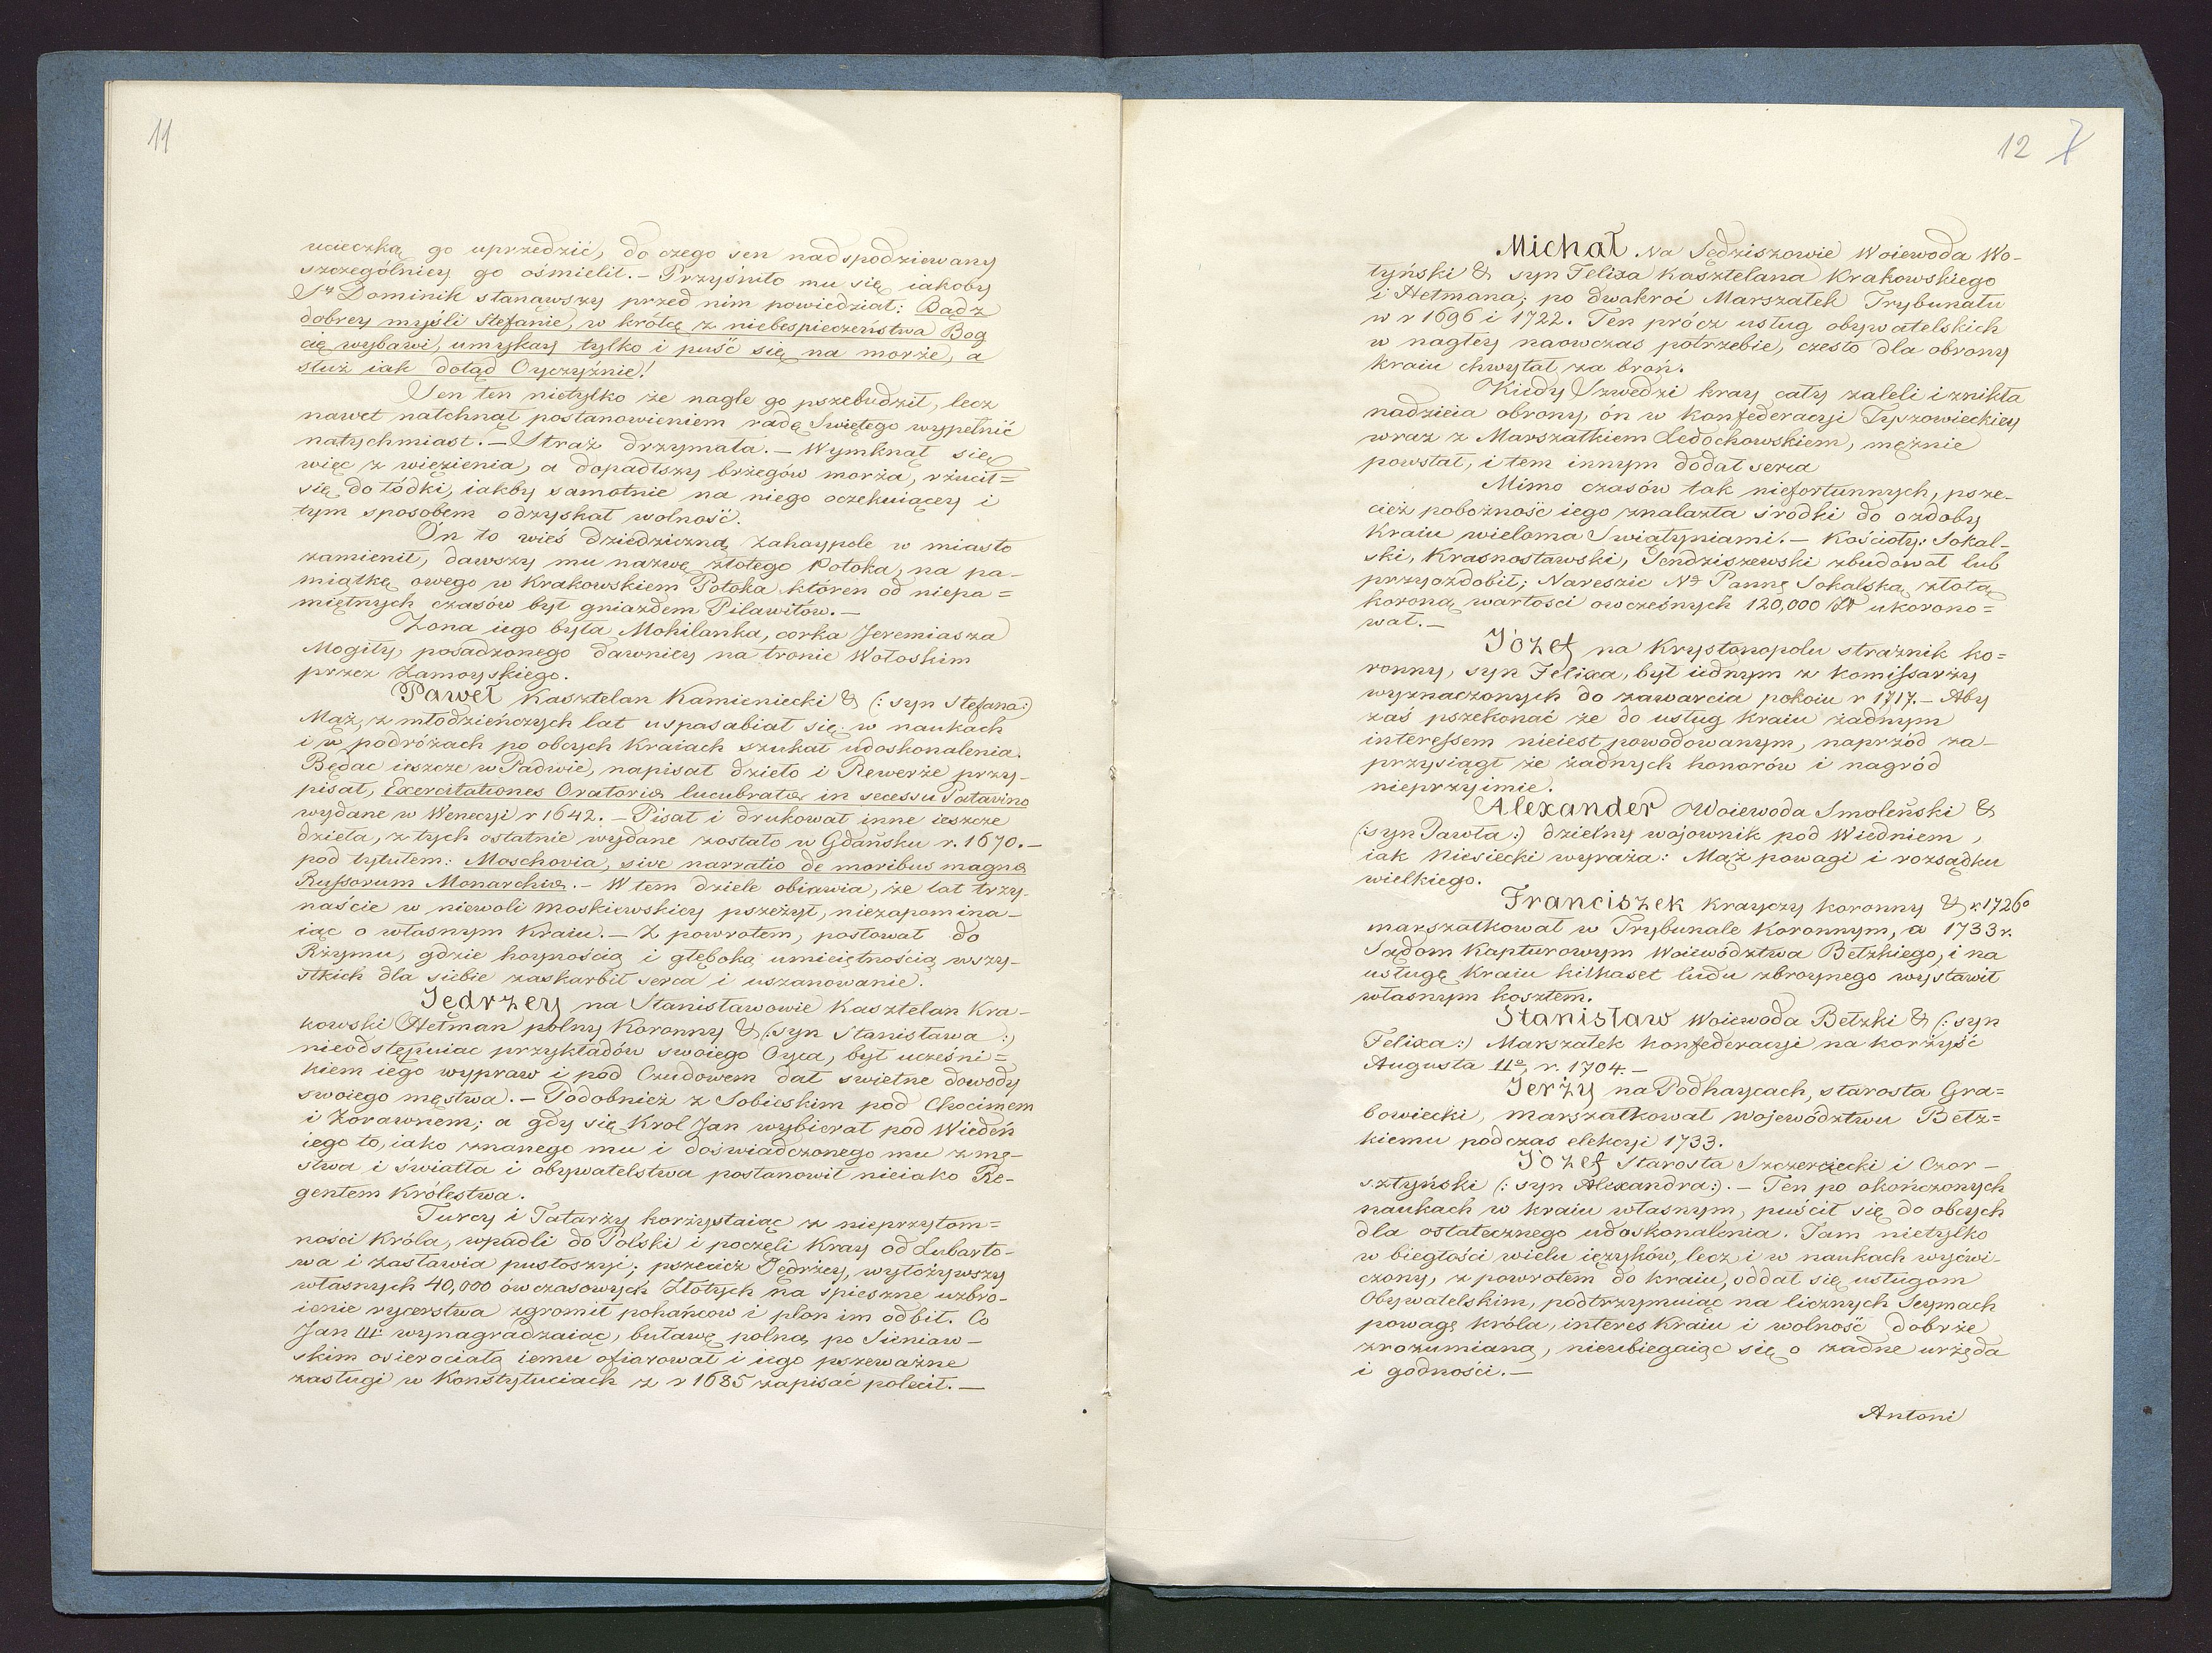 11
ucieczką go uprzedzić, do czego sen nadspodziewany
szczególniey go ośmielił. – Przyśniło mu się iakoby
Sty Dominik stanąwszy przed nim powiedział: Bądź
dobrey myśli Stefanie, w krótcę z niebespieczeństwa Bog
cię wybawi, umykay tylko i puść się na morże, a
służ iak dotąd Oyczyźnie!
Sen ten nietylko że nagle go pszebudził, lecz
nawet natchnął postanowieniem radę Swiętego wypełnić
natychmiast. – Straż drzymała. – Wymknął się
więc z więzienia, a dopadłszy brzegów morża, rżucił=
się do łódki, iakby samotnie na niego oczekuiącey i
tym sposobem odzyskał wolność.
Ón to wieś dziedziczną Zahaypole w miasto
zamienił, dawszy mu nazwę złotego Potoka, na pa-
miątkę owego w Krakowskiem Potoka któren od niepa=
miętnych czasów był gniazdem Pilawitów. –
Zona iego była Mohilanka, corka Jeremiasza
Mogiły, posadzonego dawniey na tronie Wołoskim
przez Zamoyskiego.
Paweł Kasztelan Kamieniecki & (: syn Stefana:)
Mąż, z młodzieńczych lat uspasabiał się w naukach
i w podróżach po obcych Kraiach szukał udoskonalenia.
Będac ieszcze w Padwie, napisał dzieło i Rewerże przy-
pisał, Exercitationes Oratoriæ lucubratæ in secessu Patavino
wydane w Wenecyi r 1642. – Pisał i drukował inne ieszcze
dzieła, z tych ostatnie wydane zostało w Gdańsku r. 1670. –
pod tytułem: Moschovia, sive narratio de moribus magnæ
Russorum Monarchiæ. – W tem dziele obiawia, że lat trzy-
naście w niewoli Moskiewskiey pszeżył, niezapomina-
iąc o własnym Kraiu. – Z powrotem, posłował do
Rżymu, gdzie hoynością i głęboką umieiętnością wszy-
stkich dla siebie zaskarbił serca i uszanowanie.
Jędrzey na Stanisławowie Kasztelan Kra-
kowski Hetman polny Koronny & (: syn Stanisława :)
nieodstępuiac przykładów swoiego Oyca, był ucześni=
kiem iego wypraw i pod Cudowem dał swietne dowody
swoiego męstwa. – Podobnież z Sobieskim pod Chocimem
i Żorawnem; a gdy się Krol Jan wybierał pod Wiedeń
iego to, iako znanego mu i doświadczonego mu z mę-
stwa i światła i obywatelstwa postanowił nieiako Re-
gentem Królestwa.
Turcy i Tatarży korżystaiąc z nieprzytom=
ności Króla, wpadli do Polski i poczęli Kray od Lubarto-
wa i Zasławia pustoszyć; pszecież Jędrżey, wyłożywszy
własnych 40,000 ówczasowych Złotych na spieszne uzbro-
ienie rycerstwa zgromił pohańcow i plon im odbił. Co
Jan III wynagradzaiąc, buławę polną po Sieniaw-
skim osierociałą iemu ofiarował i iego pszeważne
zasługi w Konstytuciach z r 1685 zapisać polecił. –
12 7
Michał Na Sędziszowie Woiewoda Wo-
łyński & syn Felixa Kasztelana Krakowskiego
i Hetmana; po dwakroć Marszałek Trybunału
w r 1696 i 1722. Ten prócz usług obywatelskich
w nagłey naowczas potrzebie, czesto dla obrony
kraiu chwytał za broń.
Kiedy Szwedzi kray cały zaleli i znikła
nadzieia obrony, ón w konfederacyi Tyszowieckiey
wraz z Marszałkiem Ledochowskiem, mężnie
powstał, i tem innym dodał serca
Mimo czasów tak niefortunnych, psze-
cież pobożność iego znalazła środki do ozdoby
Kraiu wieloma Swiątyniami. – Kościoły: Sokal-
ski, Krasnostawski, Sendziszewski zbudował lub
przyozdobił; Nareszcie Ną Pannę Sokalską złotą
koroną wartości owcześnych 120,000 Zł ukorono=
wał. –
Józef na Krystonopolu strażnik ko=
ronny, syn Felixa, był iednym z Komissarży
wyznaczonych do zawarcia pokoiu r 1717. – Aby
zaś pszekonać że do usług Kraiu żadnym
interessem nieiest powodowanym, naprżód za-
przysiągł że żadnych honorów i nagród
nieprzyimie.
Alexander Woiewoda Smoleński &
(: syn Pawła :) dzielny wojownik pod Wiedniem,
iak Niesiecki wyraża: Mąż powagi i rozsądku
wielkiego.
Franciszek Krayczy koronny & r 1726o
marszałkował w Trybunale Koronnym, a 1733 r.
Sądom Kapturowym Woiewództwa Bełzkiego, i na
usługę Kraiu kilkaset ludu zbroynego wystawił
własnym kosztem.
Stanisław Woiewoda Bełzki & (: syn
Felixa :) Marszałek konfederacyi na korżyść
Augusta IIo, r. 1704. –
Jerży na Podhaycach, starosta Gra=
bowiecki, marszałkował województwu Bełz=
kiemu podczas elekcyi 1733.
Józef Starosta Szczerciecki i Czor-
sztyński (: syn Alexandra :). – Ten po okończonych
naukach w kraiu własnym, puścił się do obcych
dla ostatecznego udoskonalenia. Tam nietylko
w biegłości wielu ięzyków, lecz i w naukach wyćwi-
czony, z powrotem do kraiu, oddał się usługom
Obywatelskim, podtrzymuiąc na licznych Seymach
powagę króla, interes Kraiu i wolność dobrże
zrozumianą, nieubiegaiąc się o żadne urżęda
i godności. –
Antoni